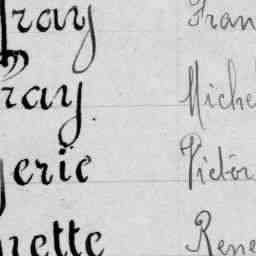 ray Fran
ray. Miche
erie Victor
rette Rene